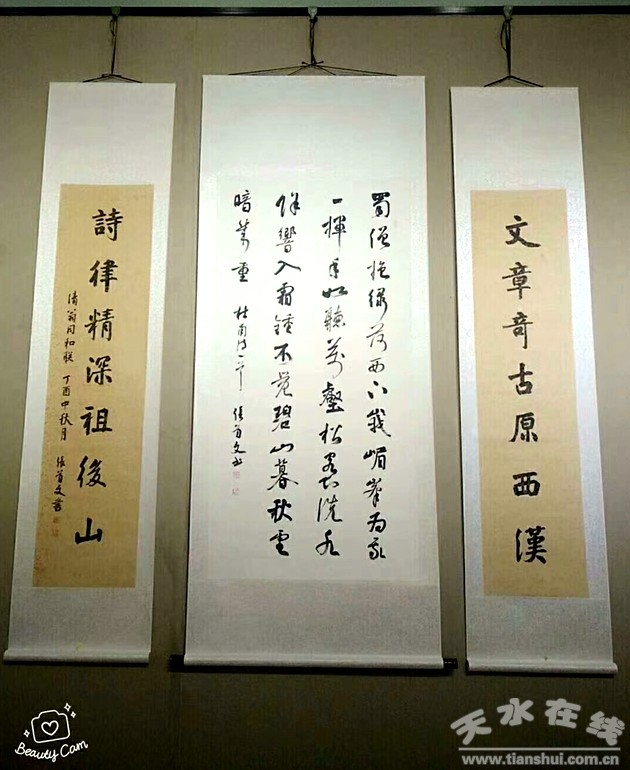 文章奇古原西漢
蜀僧抱绿绮西下峨嵋峯为我
一揮手如聽萬壑松客心洗流水
馀響入霜鍾不覺碧山暮秋雲
暗幾重 杜甫诗一首 張首文书
詩律精深祖後山
清翁同和联 丁酉中秋月 張首文書
Beauty Cam
天水在线
www.tianshui.com.cn